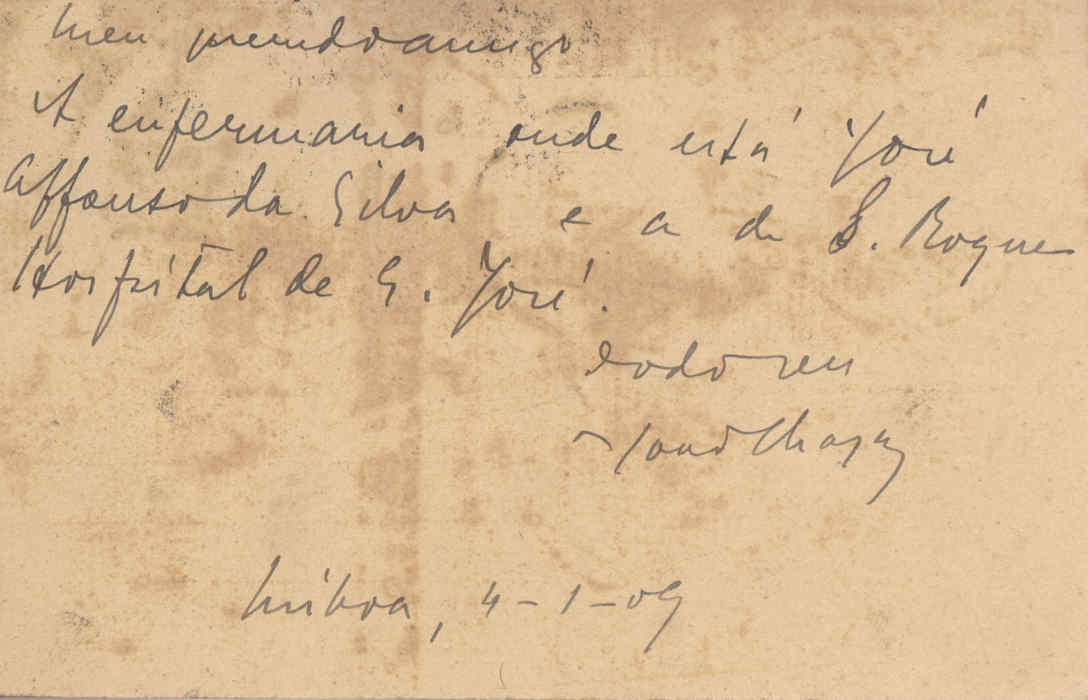 Meu presado amigo
A enfermaria onde está José
Affonso da Silva e a de S. Roque
Hospital de S. José.
Todo seu
João Chagas
Lisboa, 4-1-09